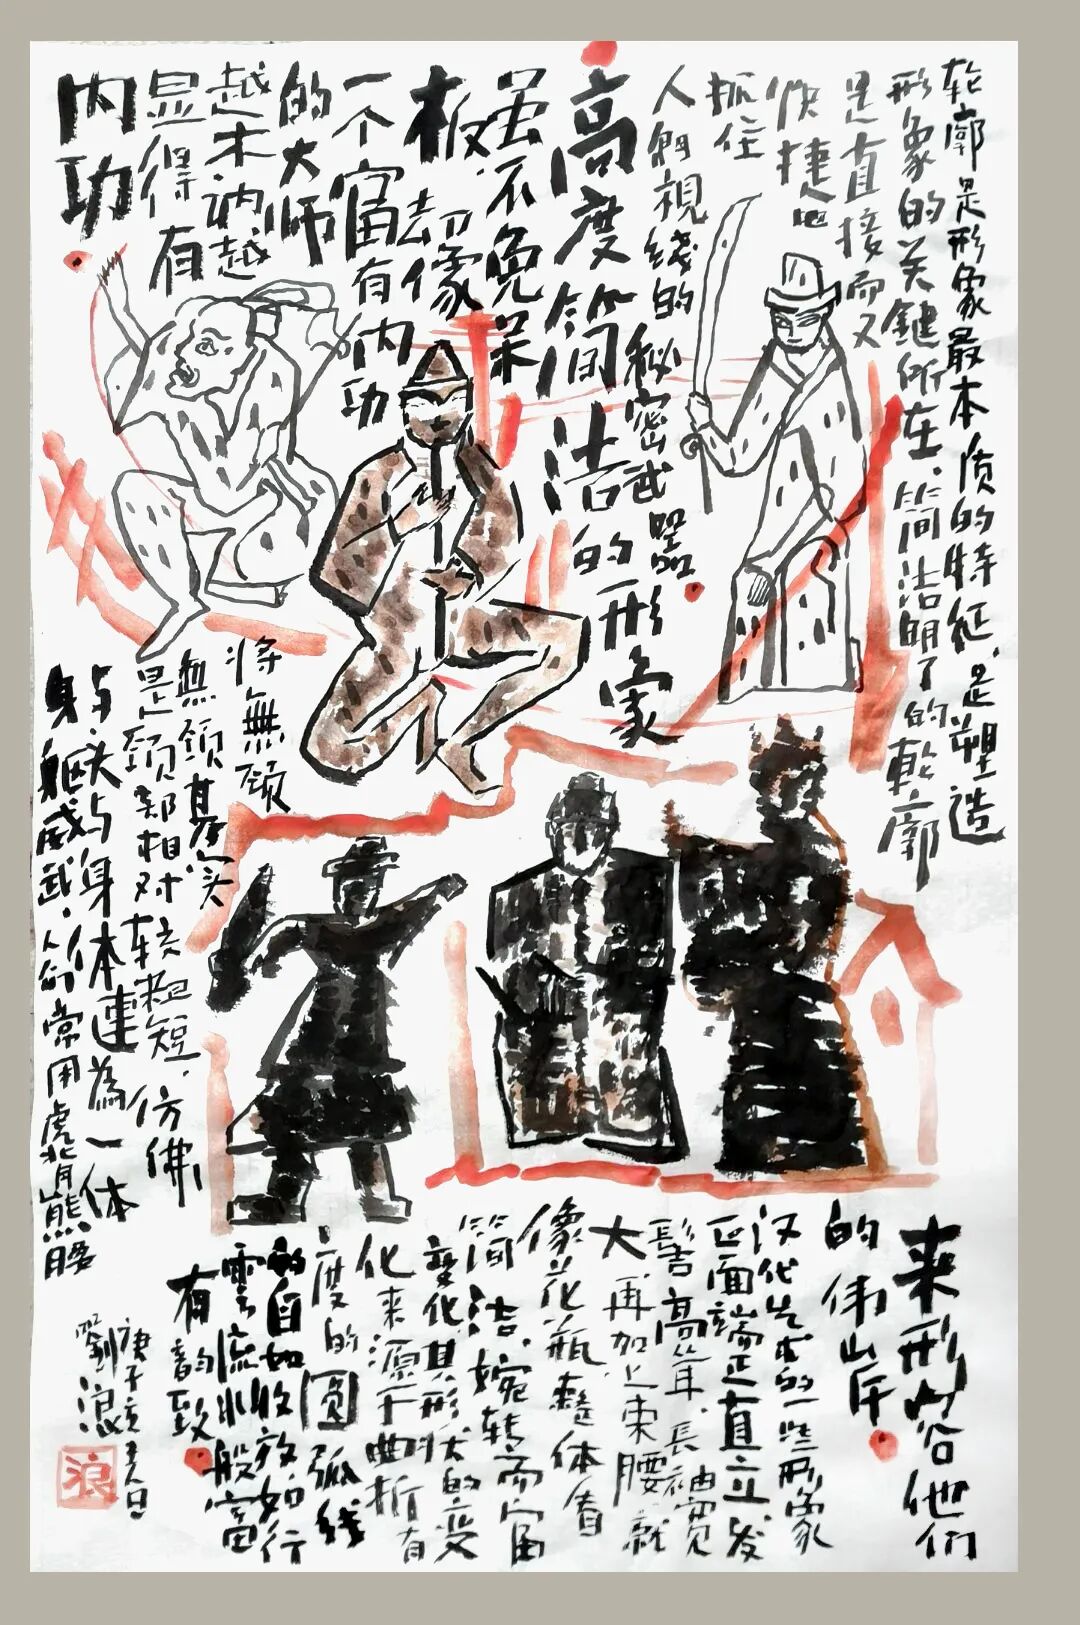 轮廓是形象最本质的特征,是塑造
形象的关键所在,简洁明了的轮廓
是直接而又
快捷地
抓住
人們視线的秘密武器
高度简洁的形象
虽不免呆
板,却像
一个富有内功
的大师
越木讷越
显得有
内功
将無颈
無颈
是颈部相对较粗短,仿佛
头与身体連為一体
身躯威武,人们常用虎背熊腰
来形容他们
的伟岸
汉代出土的一些形象
正面端正直立发
髻高耸,長袖寬
大再加上束腰就
像花瓶,整体看
简洁,婉转而富
变化其形状的变
化来源于曲折有
度的圆弧线
的自如收放如行
雲流水般富
有韵致
庚子
劉浪
浪